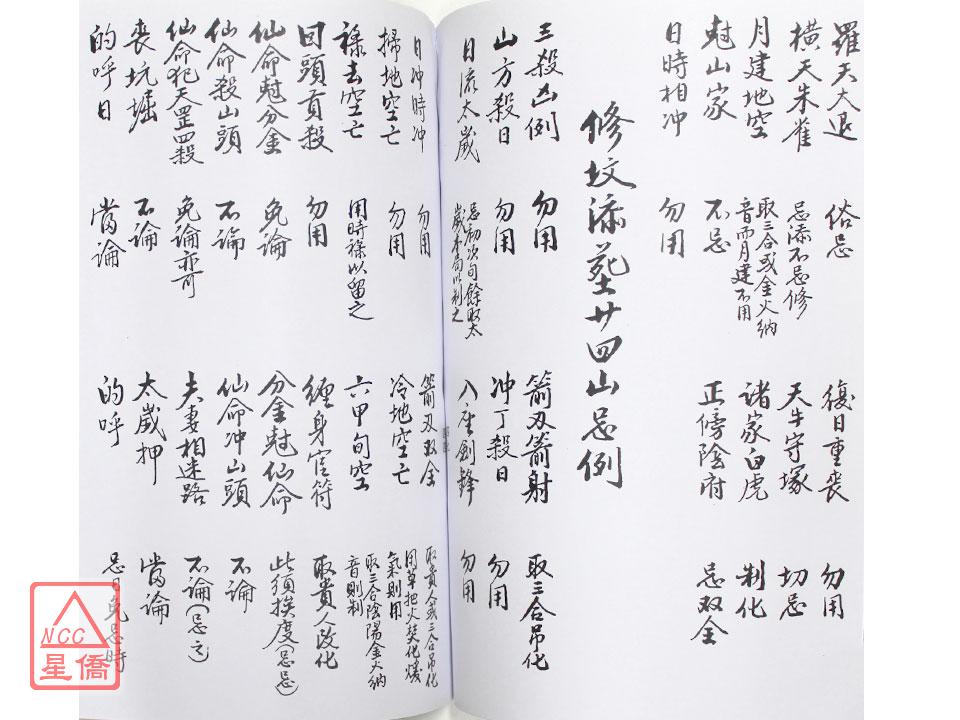 羅天大退 俗忌 復日重喪 勿用
橫天朱雀 忌添不忌修 天牛守塚 切忌
月建地空 取三合或金火納音而月建不用 諸家白虎 制化
尅山家 不忌 正傍陰府 忌双全
日時相冲 勿用
修坟添塟廿四山忌例
三殺凶例 勿用 箭刃箭射 取三合吊化
山方殺日 勿用 冲丁殺日 勿用
日流太歲 忌初次旬餘取太歲本局以制之 入座劍鋒 勿用
日冲時冲 勿用 箭刃双全 取貴人或三合吊化
掃地空亡 勿用 冷地空亡 用草把火焚化煖氣則用
祿去空亡 用時祿以留之 六甲旬空 取三合陰陽金火納音則制
回頭貢殺 勿用 纏身官符 取貴人改化
仙命尅分金 免論 分金尅仙命 此須挨度(忌忌)
仙命殺山頭 不論 仙命冲山頭 不論
仙命犯天罡四殺 免論亦可 夫妻相迷路 不論(忌之)
喪坑堀 不論 太歲押 當論
的呼日 當論 的呼 忌日免忌時
NCC
星僑